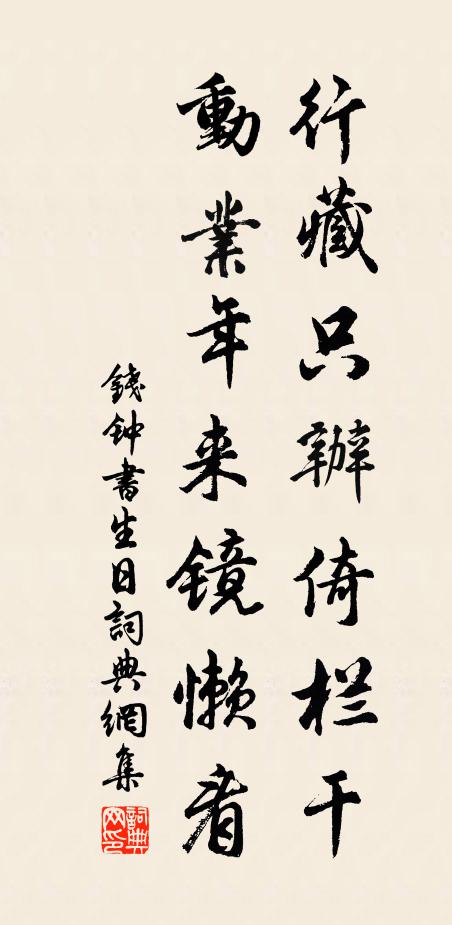 行藏只辦倚栏干
動業年来镜懒看
錢钟書生日詞典網集
詞典网印